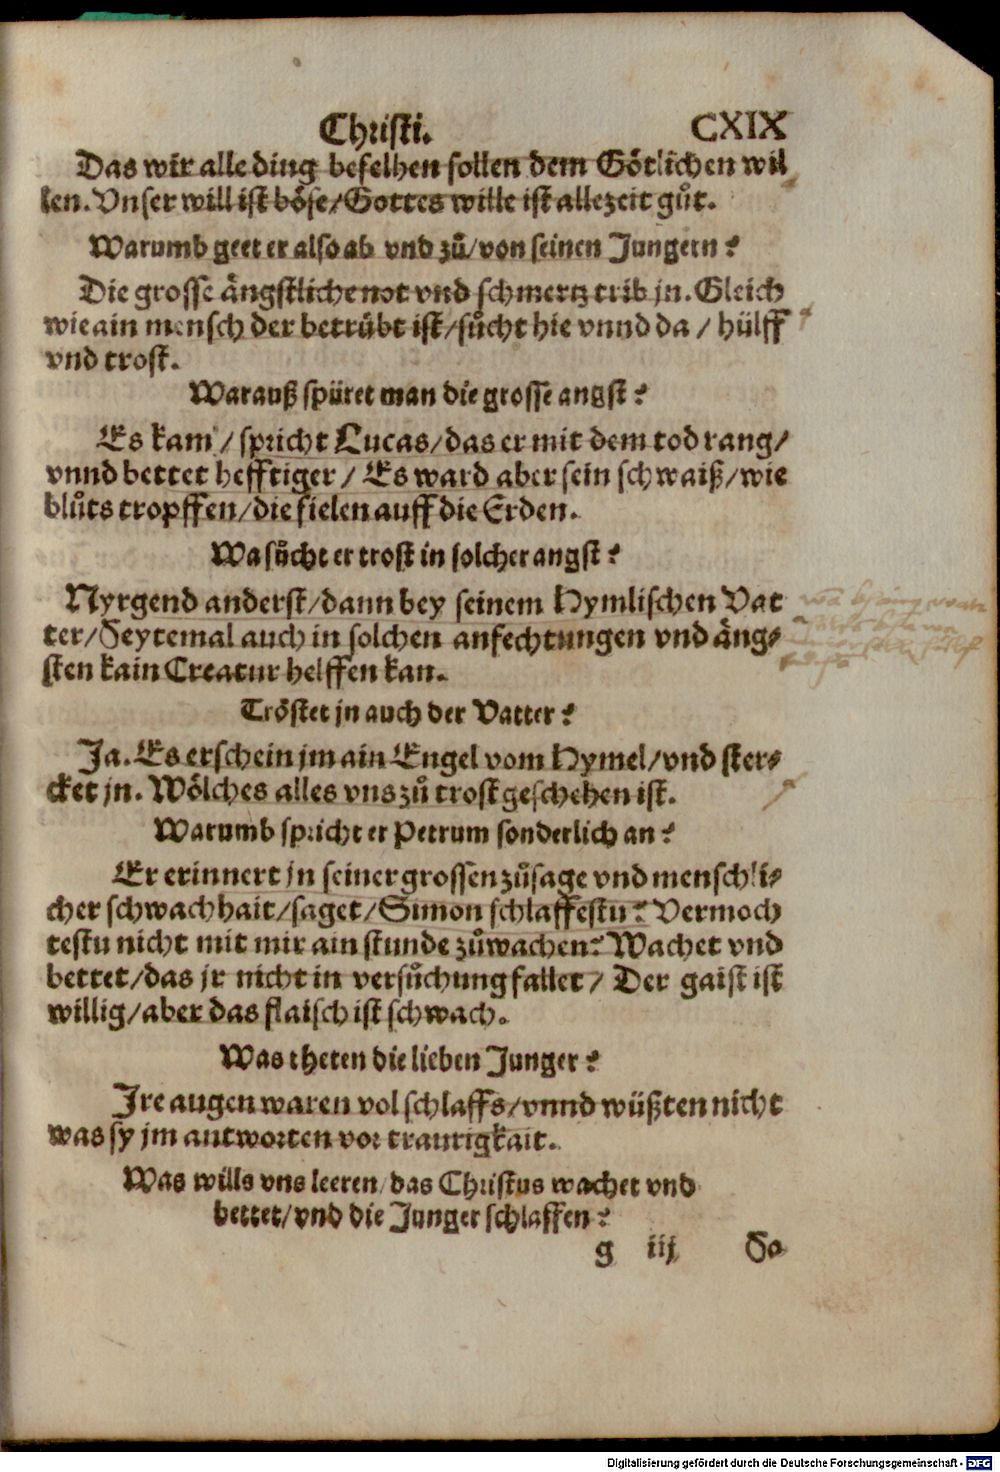 Christi. CXIX
Das wir alle ding befelhen sollen dem Götlichen wil
len. Vnser will ist böse/Gottes wille ist allezeit gůt.
Warumb geet er also ab vnd zů/von seinen Jungern?
Die grosse ängstliche not vnd schmertz trib jn. Gleich
wie ain mensch der betrübt ist/sůcht hie vnnd da / hülff
vnd trost.
Warauß spüret man die grosse angst?
Es kam / spricht Lucas/das er mit dem tod rang/
vnnd bettet hefftiger / Es ward aber sein schwaiß/wie
blůts tropffen/die fielen auff die Erden.
Wa sůcht er trost in solcher angst?
Nyrgend anderst/dann bey seinem Hymlischen Vat
ter/Seytemal auch in solchen anfechtungen vnd äng⸗
sten kain Creatur helffen kan.
Tröstet jn auch der Vatter?
Ja. Es erschein jm ain Engel vom Hymel/vnd ster⸗
cket jn. Wölches alles vns zů trost geschehen ist.
Warumb spricht er Petrum sonderlich an?
Er erinnert jn seiner grossen zůsage vnd menschli⸗
cher schwachhait/saget/Simon schlaffestu? Vermoch
testu nicht mit mir ain stunde zůwachen? Wachet vnd
bettet/das jr nicht in versůchung fallet/ Der gaist ist
willig/aber das flaisch ist schwach.
Was theten die lieben Junger?
Jre augen waren vol schlaffs/vnnd wüßten nicht
was sy jm antworten vor traurigkait.
Was wills vns leeren/das Christus wachet vnd
bettet/vnd die Junger schlaffen?
g iij Da
Digitalisierung gefördert durch die Deutsche Forschungsgemeinschaft - DFG